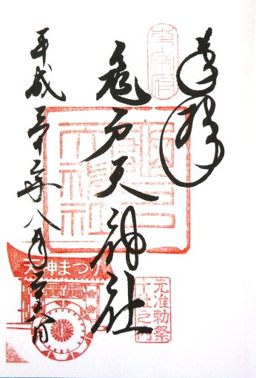 奉拝
東宰府
亀戸天神社
亀戸天神社
元准勅祭
十社之内
平成 年八月 日
天神まつり